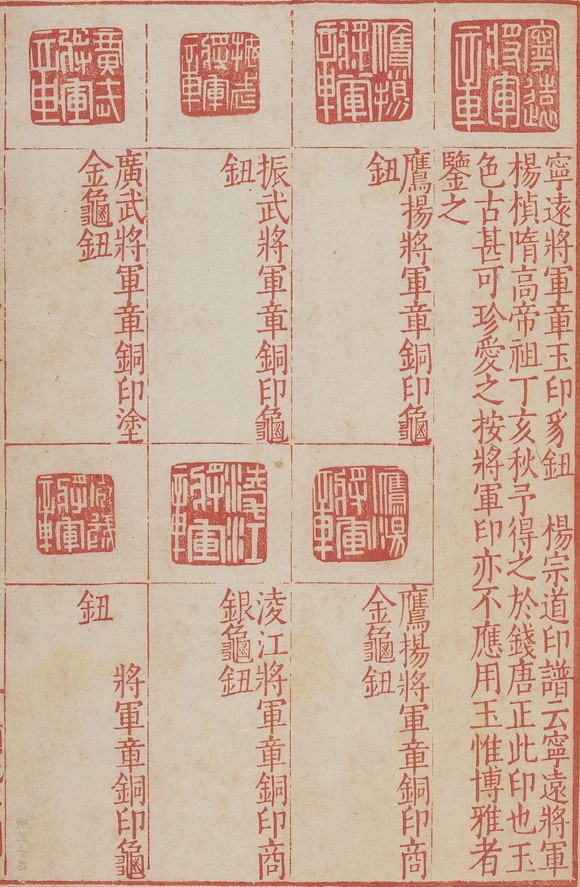 寧遠將軍章
寧遠將軍章玉印豸鈕　楊宗道印譜云寧遠將軍
楊楨隋高帝祖丁亥秋予得之於錢唐正此印也玉
色古甚可珍愛之按將軍印亦不應用玉惟博雅者
鑒之
鷹揚將軍章
鷹揚將軍章銅印龜
鈕
振武將軍章
振武將軍章銅印龜
鈕
廣武將軍章
廣武將軍章銅印塗
金龜鈕
鷹揚將軍章
鷹揚將軍章銅印商
金龜鈕
淩江將軍章
淩江將軍章銅印商
銀龜鈕
將軍章
將軍章銅印龜
鈕